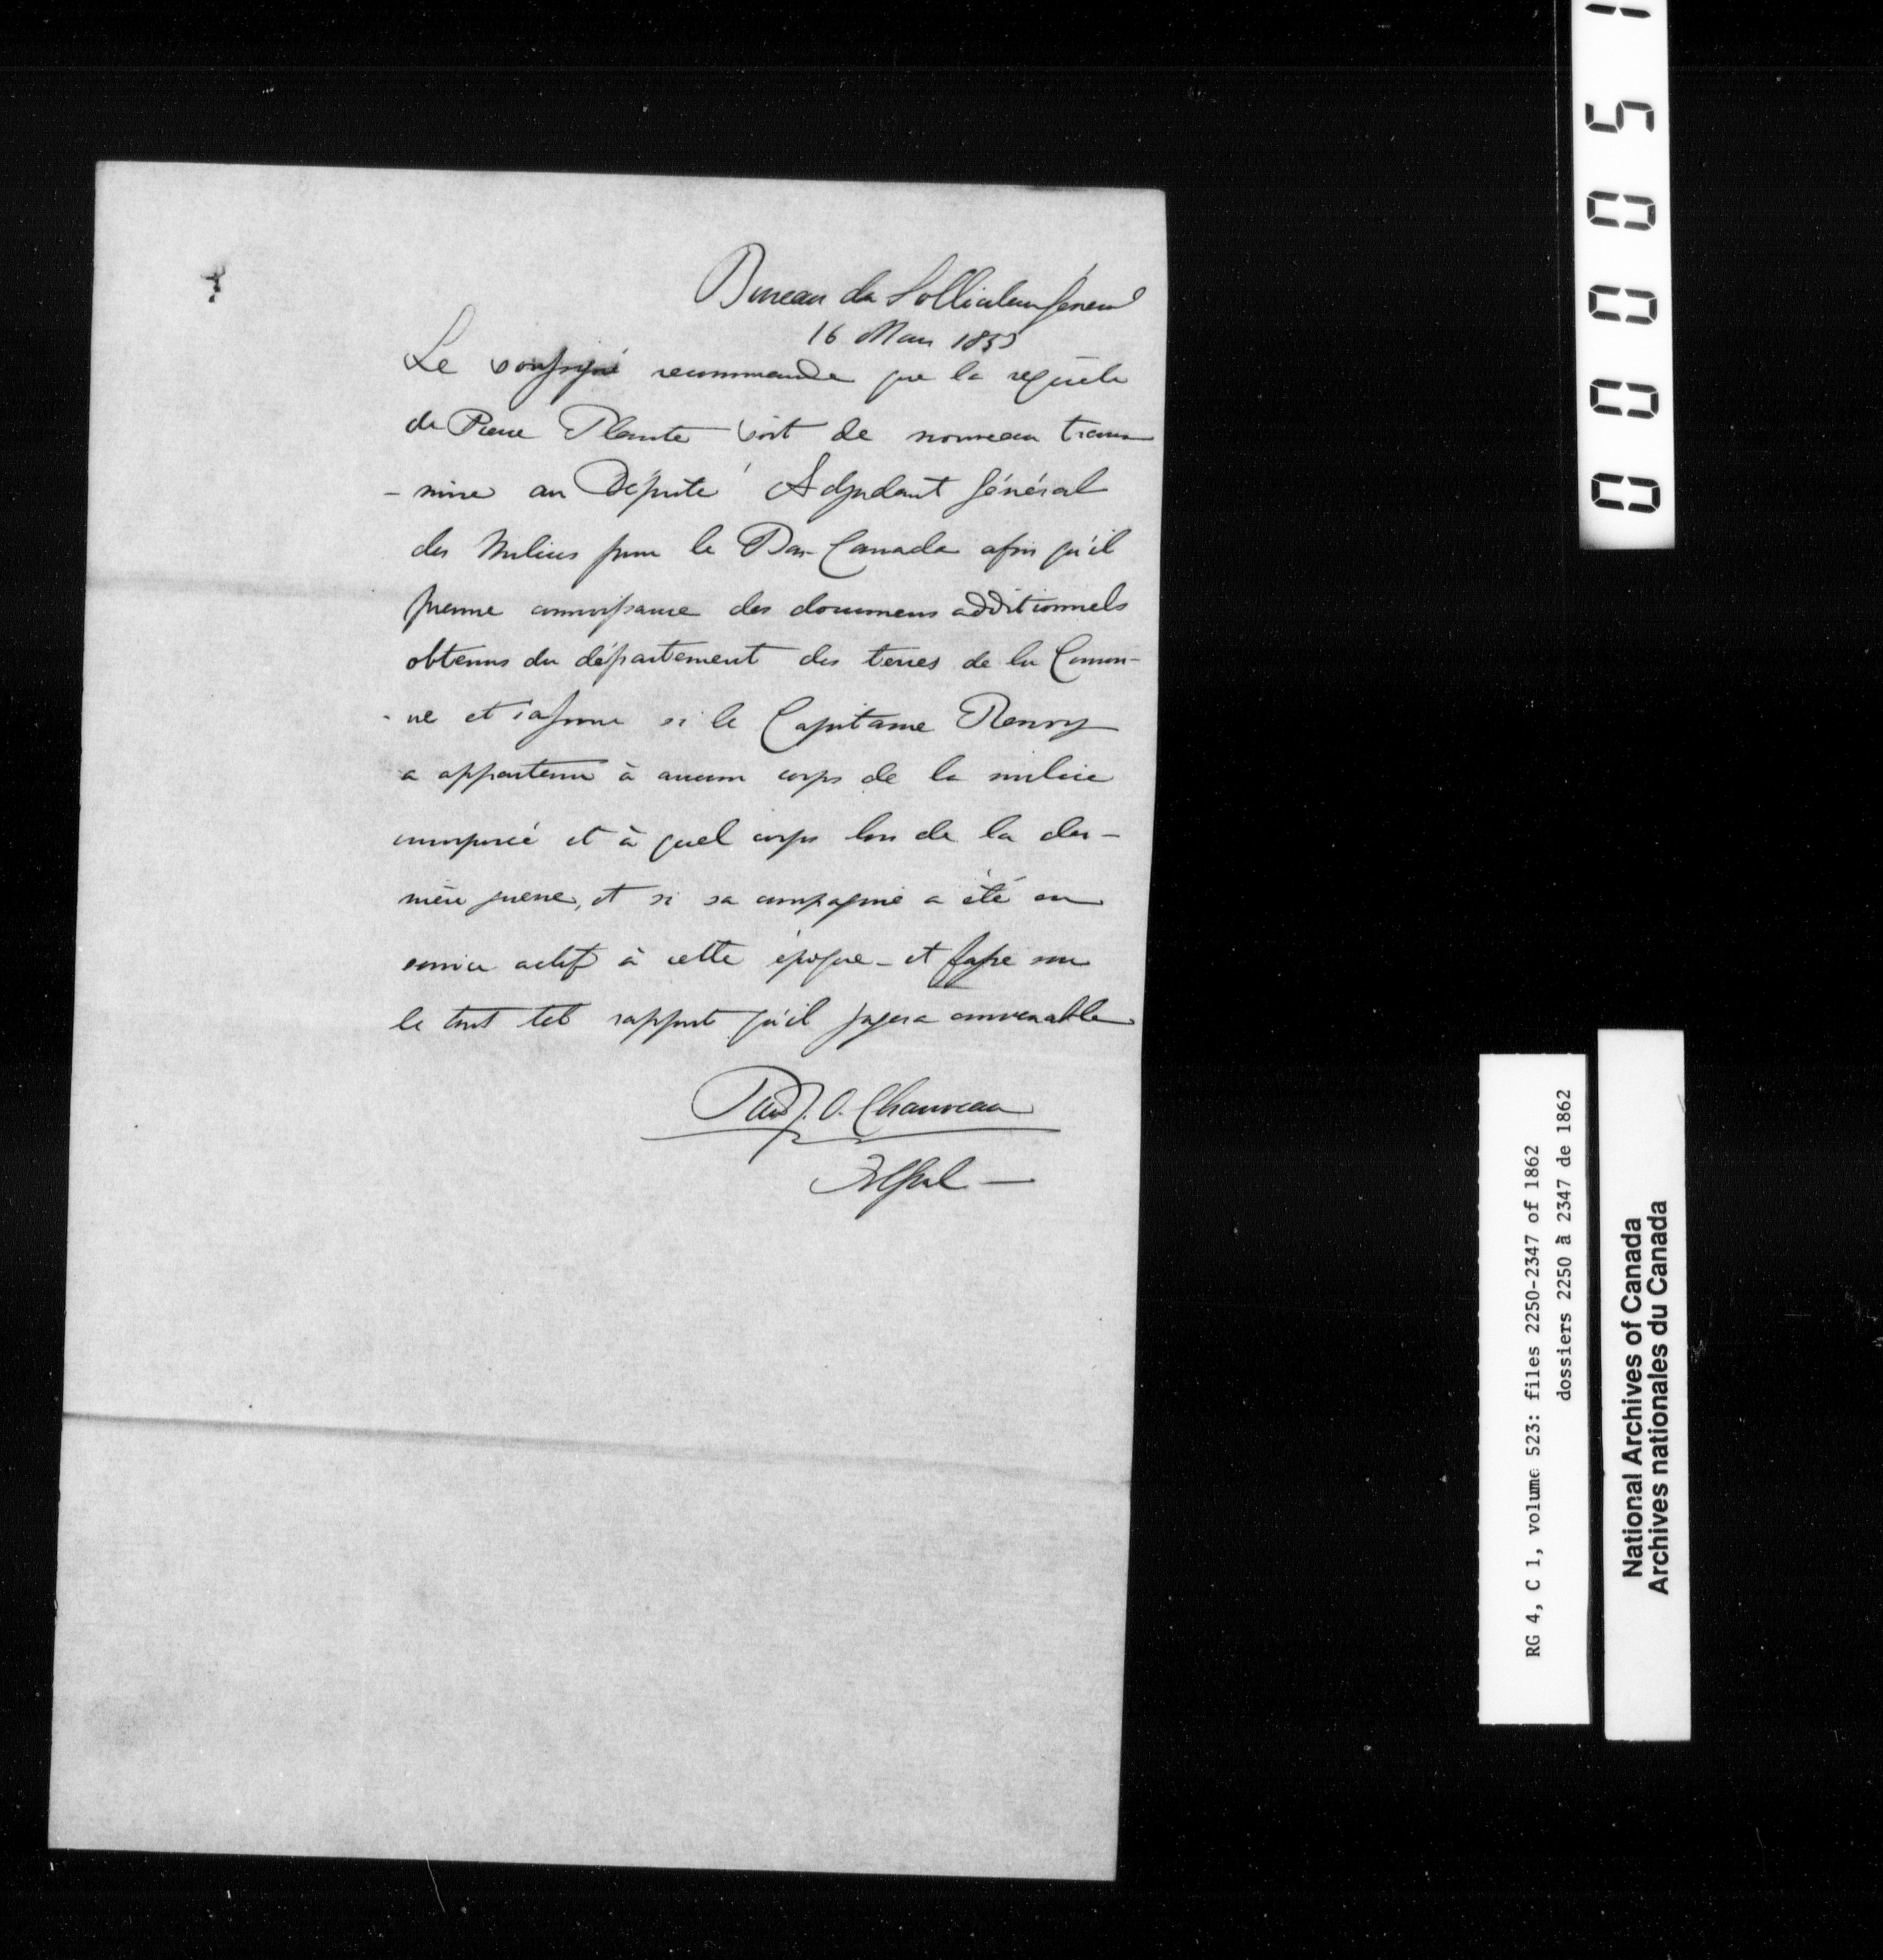 Bureau du Solliciteur Général
16 Mars 1853
Le soussigné recommande que la requête
de Pierre Plante soit de nouveau trans
- mise au Député Adjudant Général
des Milices pour le Bas-Canada afin qu'il
prenne connoissance des documens additionnels
obtenus du département des terres de la Couron-
- ne et informe si le Capitaine
a appartenu à aucun corps de la milice
incorporé et à quel corps lors de la der-
nière guerre, et si sa compagnie a été en
service actif à cette époque - et fasse sur
le tout tel rapport qu'il jugera convenable
P. J. O. Chauveau
00051
RG 4, C 1, volume 523: files 2250-2347 of 1862
dossiers 2250 à 2347 de 1862
National Archives of Canada
Archives nationales du Canada